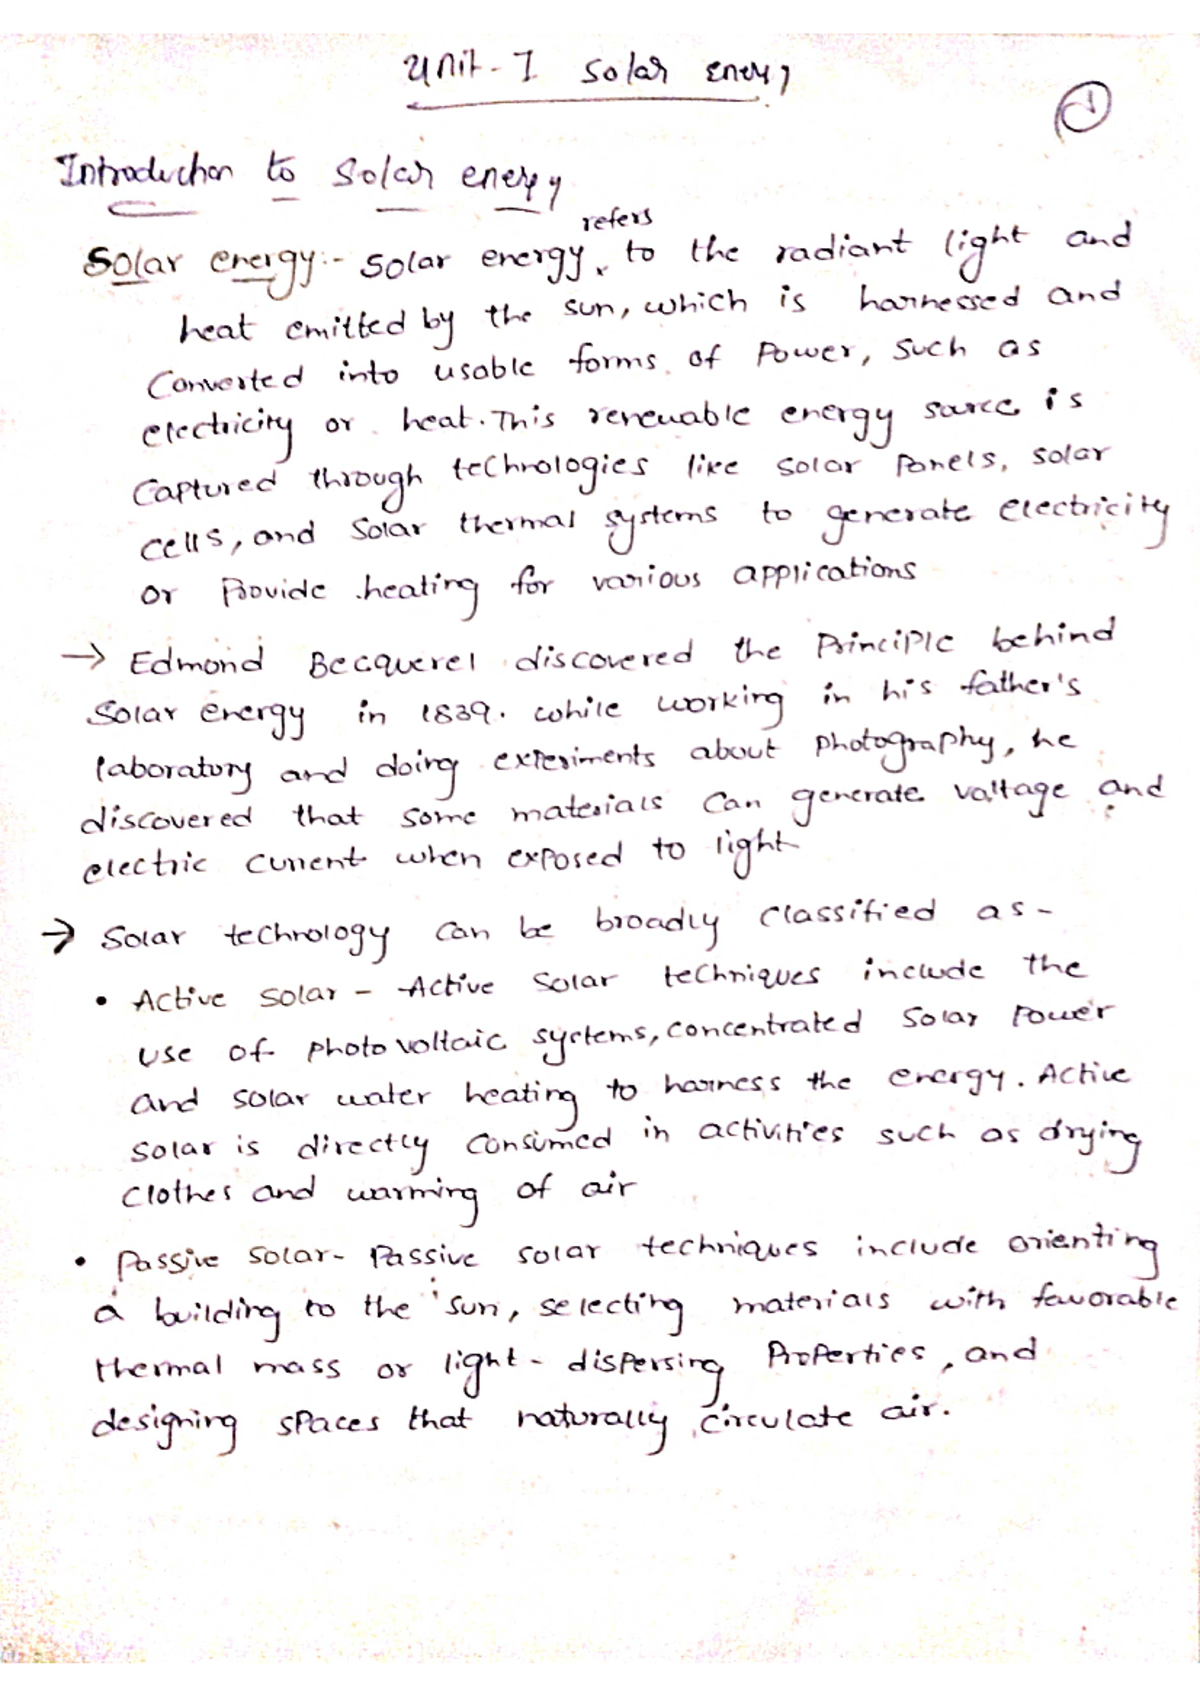 Unit-I Solar Energy
1
Introduction to Solar energy
refers
Solar energy:- Solar energy to the radiant light and
heat emitted by the sun, which is harnessed and
Converted into usable forms of Power, such as
electricity or heat. This renewable energy source is
Captured through technologies like solar Panels, solar
cells, and Solar thermal systems to generate electricity
or Provide heating for various applications
→ Edmond Becquerel discovered the Principle behind
Solar energy in 1839. while working in his father's
laboratory and doing experiments about photography, he
discovered that some materials can generate voltage and
electric current when exposed to light
→ Solar technology can be broadly classified as-
• Active solar - Active Solar techniques include the
use of photovoltaic systems, concentrated Solar Power
and solar water heating to harness the energy. Active
solar is directly consumed in activities such as drying
clothes and warming of air
• Passive solar- Passive solar techniques include orienting
a building to the sun, selecting materials with favorable
thermal mass or light-dispersing Properties, and
designing spaces that naturally circulate air.